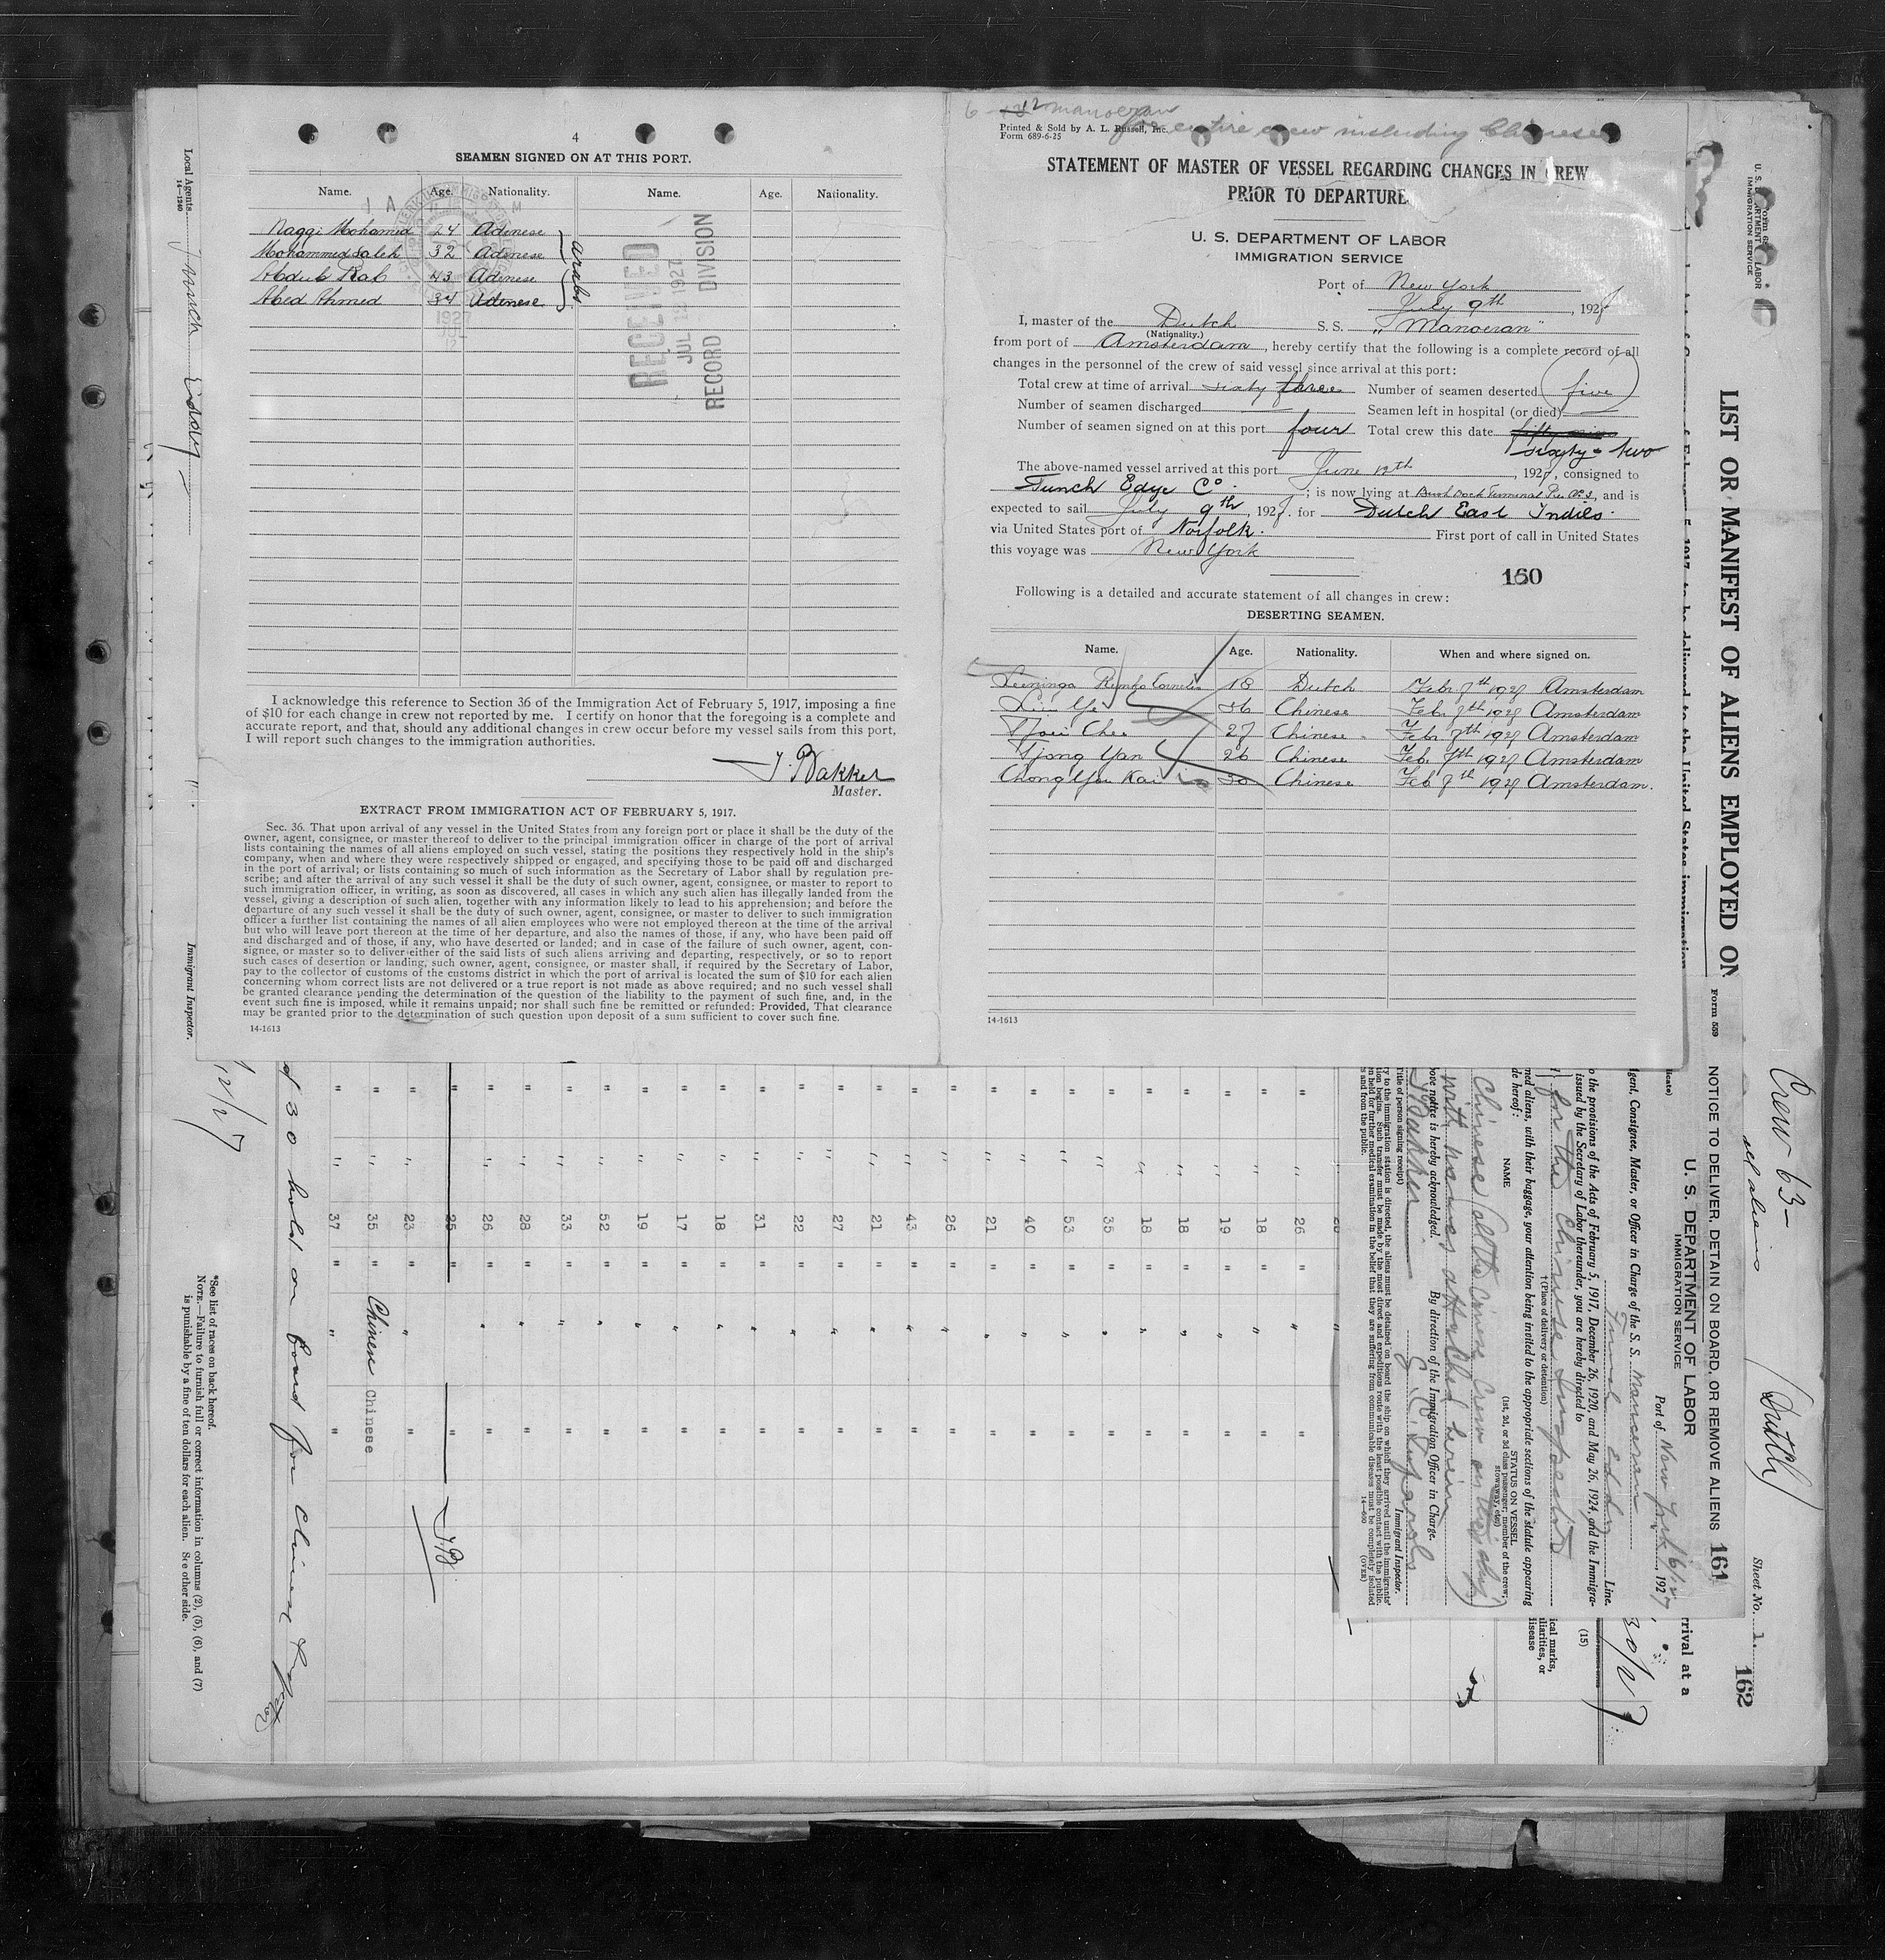 4
SEAMEN SIGNED ON AT THIS PORT.
Name. Age. Nationality. Name. Age. Nationality.
Naggi Mohamed 24 Adenese
Mohammed Saleh 32 Adenese
Abdul Rab 43 Adenese
Abed Ahmed 34 Adenese
arabs
RECEIVED
JUL 1927
RECORD DIVISION
I acknowledge this reference to Section 36 of the Immigration Act of February 5, 1917, imposing a fine
of $10 for each change in crew not reported by me. I certify on honor that the foregoing is a complete and
accurate report, and that, should any additional changes in crew occur before my vessel sails from this port,
I will report such changes to the immigration authorities.
J. Bakker
Master.
EXTRACT FROM IMMIGRATION ACT OF FEBRUARY 5, 1917.
Sec. 36. That upon arrival of any vessel in the United States from any foreign port or place it shall be the duty of the
owner, agent, consignee, or master thereof to deliver to the principal immigration officer in charge of the port of arrival
lists containing the names of all aliens employed on such vessel, stating the positions they respectively hold in the ship's
company, when and where they were respectively shipped or engaged, and specifying those to be paid off and discharged
in the port of arrival; or lists containing so much of such information as the Secretary of Labor shall by regulation pre-
scribe; and after the arrival of any such vessel it shall be the duty of such owner, agent, consignee, or master to report to
such immigration officer, in writing, as soon as discovered, all cases in which any such alien has illegally landed from the
vessel, giving a description of such alien, together with any information likely to lead to his apprehension; and before the
departure of any such vessel it shall be the duty of such owner, agent, consignee, or master to deliver to such immigration
officer a further list containing the names of all alien employees who were not employed thereon at the time of the arrival
but who will leave port thereon at the time of her departure, and also the names of those, if any, who have been paid off
and discharged and of those, if any, who have deserted or landed; and in case of the failure of such owner, agent, con-
signee, or master so to deliver either of the said lists of such aliens arriving and departing, respectively, or so to report
such cases of desertion or landing, such owner, agent, consignee, or master shall, if required by the Secretary of Labor,
pay to the collector of customs of the customs district in which the port of arrival is located the sum of $10 for each alien
concerning whom correct lists are not delivered or a true report is not made as above required; and no such vessel shall
be granted clearance pending the determination of the question of the liability to the payment of such fine, and, in the
event such fine is imposed, while it remains unpaid; nor shall such fine be remitted or refunded: Provided, That clearance
may be granted prior to the determination of such question upon deposit of a sum sufficient to cover such fine.
14-1613
manoeran
for entire crew including Chinese
Printed & Sold by A. L. Russell, Inc.
Form 689-6-25
STATEMENT OF MASTER OF VESSEL REGARDING CHANGES IN CREW
PRIOR TO DEPARTURE
U. S. DEPARTMENT OF LABOR
IMMIGRATION SERVICE
Port of New York
July 9th, 1927
I, master of the Dutch S. S. "Manoeran"
(Nationality.)
from port of Amsterdam, hereby certify that the following is a complete record of all
changes in the personnel of the crew of said vessel since arrival at this port:
Total crew at time of arrival sixty three Number of seamen deserted five
Number of seamen discharged Seamen left in hospital (or died)
Number of seamen signed on at this port four Total crew this date
sixty-two
The above-named vessel arrived at this port June 12th, 1927, consigned to
Funch Edye Co.; is now lying at Bush Dock Terminal Pier No 3, and is
expected to sail July 9th, 1927. for Dutch East Indies.
via United States port of Norfolk. First port of call in United States
this voyage was New York
160
Following is a detailed and accurate statement of all changes in crew:
DESERTING SEAMEN.
Name. Age. Nationality. When and where signed on.
18 Dutch Feb. 7th 1927 Amsterdam
36 Chinese Feb. 7th 1927 Amsterdam
27 Chinese Feb. 7th 1927 Amsterdam
Tjong Yan 26 Chinese Feb. 7th 1927 Amsterdam
30 Chinese Feb 7th 1927 Amsterdam.
14-1613
Local Agents.
14-1240
Immigrant Inspector.
U. S. DEPARTMENT OF LABOR
IMMIGRATION SERVICE
LIST OR MANIFEST OF ALIENS EMPLOYED ON
Crew 63-
all aliens
(Dutch)
Sheet No. 1.
162
Form 559
NOTICE TO DELIVER, DETAIN ON BOARD, OR REMOVE ALIENS
161
U. S. DEPARTMENT OF LABOR
IMMIGRATION SERVICE
Port of New York 6/12, 1927
Agent, Consignee, Master, or Officer in Charge of the S. S. Manoeran
Line.
o the provisions of the Acts of February 5, 1917, December 26, 1920, and May 26, 1924, and the Immigra-
issued by the Secretary of Labor thereunder, you are hereby directed to
for the Chinese Inspector
†(Place of delivery or detention)
med aliens, with their baggage, your attention being invited to the appropriate sections of the statute appearing
de hereof:
NAME
STATUS ON VESSEL
(1st, 2d, or 3d class passenger; member of the crew;
stowaway, etc.)
Chinese (all the Chinese Crew on this ship)
with names attached herein
ove notice is hereby acknowledged. By direction of the Immigration Officer in Charge.
J Bakker
Title of person signing receipt)
Immigrant Inspector.
14-600
(OVER)
37
35 Chinese Chinese
23
25
26
28
33
52
19
17
18
31
22
27
21
43
25
21
40
53
35
18
18
19
18
26
J.B.
d 30 hold on board for Chinese
*See list of races on back hereof.
NOTE.—Failure to furnish full or correct information in columns (2), (5), (6), and (7)
is punishable by a fine of ten dollars for each alien. See other side.